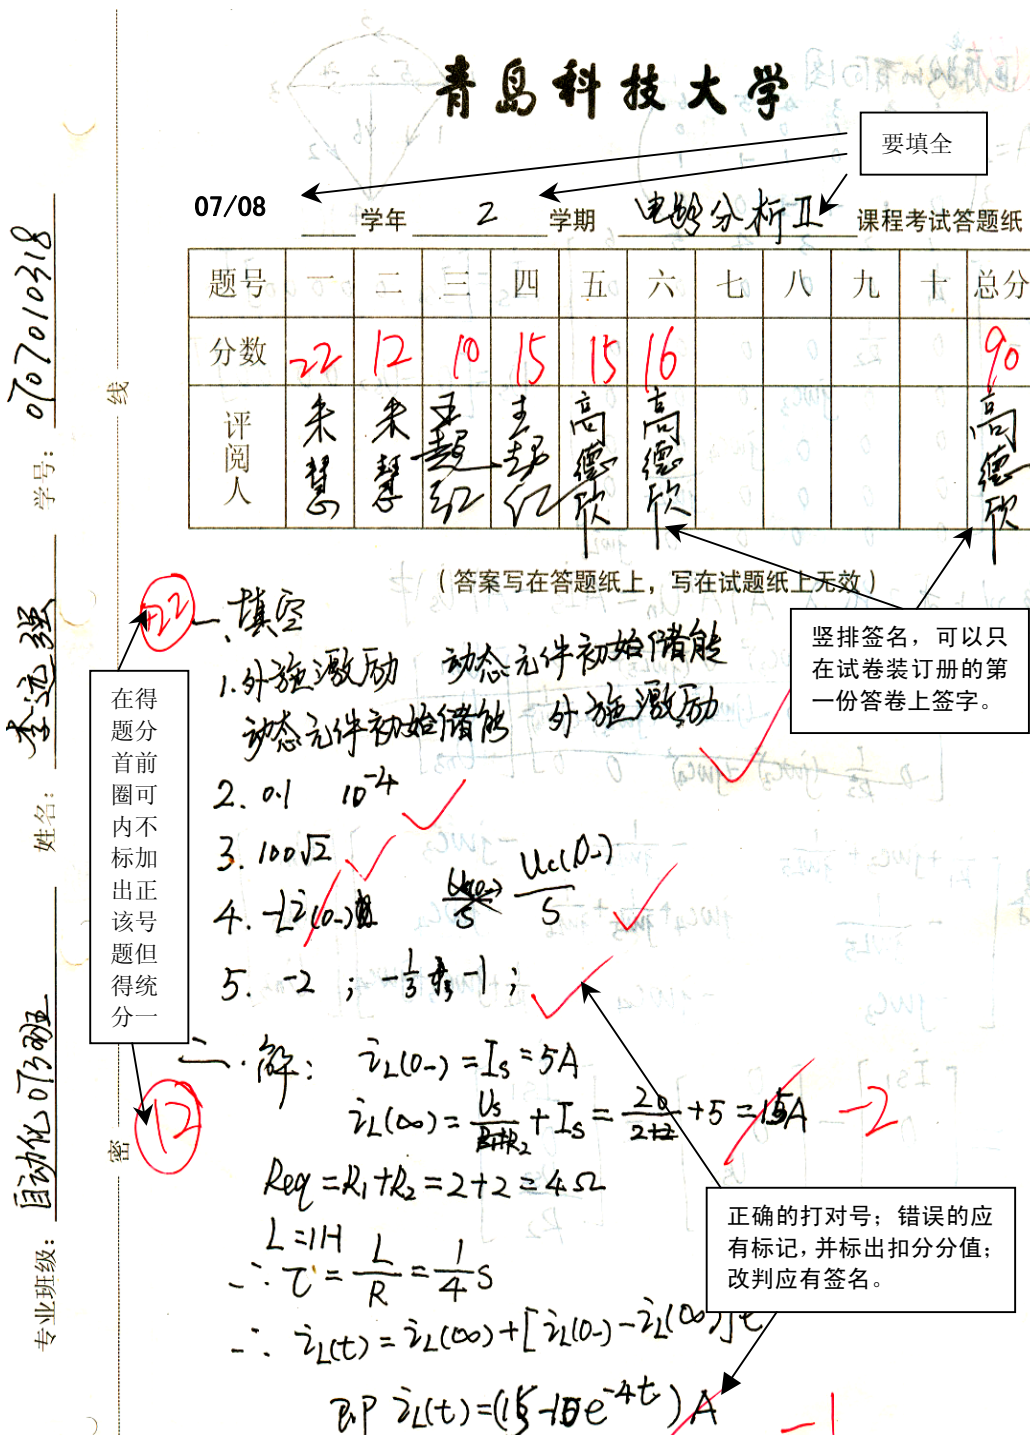 青岛科技大学
要填全
07/08 学年 2 学期 电路分析Ⅱ 课程考试答题纸
题号 一 二 三 四 五 六 七 八 九 十 总分
分数 22 12 10 15 15 16 90
评阅人 朱慧 朱慧 王超红 王超红 高德欣 高德欣 高德欣
(答案写在答题纸上，写在试题纸上无效)
竖排签名，可以只
在试卷装订册的第
一份答卷上签字。
学号： 0707010318
姓名： 李远强
专业班级： 自动化073班
线
密
在得
题分
首前
圈可
内不
标加
出正
该号
题但
得统
分一
+22
一、填空
1.外施激励 动态元件初始储能
动态元件初始储能 外施激励
2. 0.1 10⁻⁴
3. 100√2
4. -Li(0-) Uc(0-)/S
5. -2 ; -1/3 -1 ;
12
二.解： iL(0-) = Is = 5A
iL(∞) = Us/R1+R2 + Is = 20/2+2 + 5 = 15A -2
Req = R₁+R₂ = 2+2 = 4Ω
L=1H
∴ τ = L/R = 1/4 s
∴ iL(t) = iL(∞) + [iL(0-) - iL(∞)]e
即 iL(t) = (15-10e⁻⁴ᵗ) A -1
正确的打对号；错误的应
有标记，并标出扣分分值；
改判应有签名。